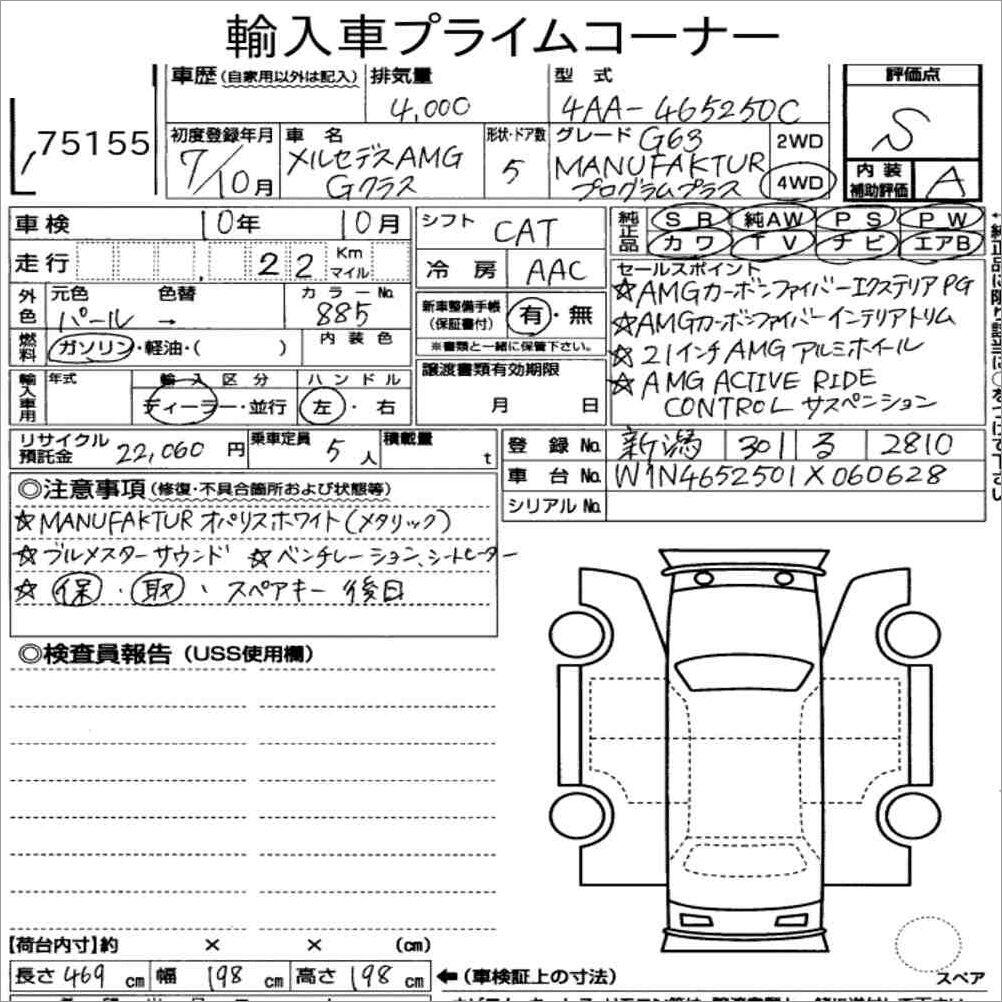 輸入車プライムコーナー
75155
車歴(自家用以外は記入)
排気量
4,000
型式
4AA-465250C
評価点
S
初度登録年月
7/10月
車名
メルセデスAMG
Gクラス
形状・ドア数
5
グレード G63
MANUFAKTUR
プログラムプラス
2WD
4WD
内装
補助評価
A
車検 10年 10月
走行 22 Km
マイル
シフト CAT
冷房 AAC
純正品
SR 純AW PS PW
カワ TV ナビ エアB
外色
元色 色替 カラーNo.
パール → 885
燃料
ガソリン・軽油・( )
内装色
新車整備手帳
(保証書付)
有・無
※書類と一緒に保管下さい。
セールスポイント
☆AMGカーボンファイバーエクステリアPG
☆AMGカーボンファイバーインテリアトリム
☆21インチAMGアルミホイール
☆AMG ACTIVE RIDE
CONTROL サスペンション
輸入車用
年式
輸入区分
ディーラー・並行
ハンドル
左・右
譲渡書類有効期限
月 日
リサイクル
預託金 22,060円
乗車定員 5人
積載量 t
登録No. 新潟 301 る 2810
車台No. W1N4652501X060628
シリアルNo.
◎注意事項(修復・不具合箇所および状態等)
☆MANUFAKTURオパリスホワイト(メタリック)
☆ブルメスターサウンド ☆ベンチレーション、シートヒーター
☆保・取、スペアキー後日
◎検査員報告(USS使用欄)
【荷台内寸】約 × × (cm)
長さ 469cm 幅 198cm 高さ 198cm
←(車検証上の寸法)
スペア